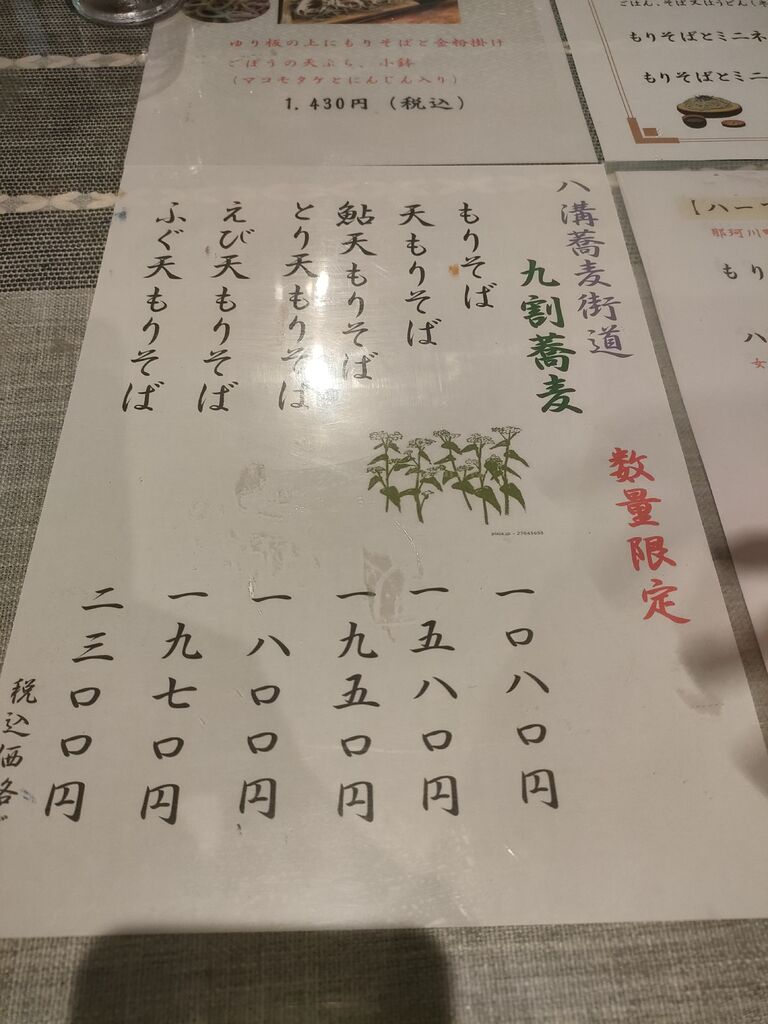 ゆり板の上にもりそばと金粉掛け
ごぼうの天ぷら、小鉢
(マコモタケとにんじん入り)
1.430円 (税込)
ごはん、そば又はうどん(
もりそばとミニネ
もりそばとミニ
八溝蕎麦街道
九割蕎麦
数量限定
もりそば
一〇八〇円
天もりそば
一五八〇円
鮎天もりそば
一九五〇円
とり天もりそば
一八〇〇円
えび天もりそば
一九七〇円
ふぐ天もりそば
二三〇〇円
税込価格
【ハー
那珂川町
もり
ハ
女